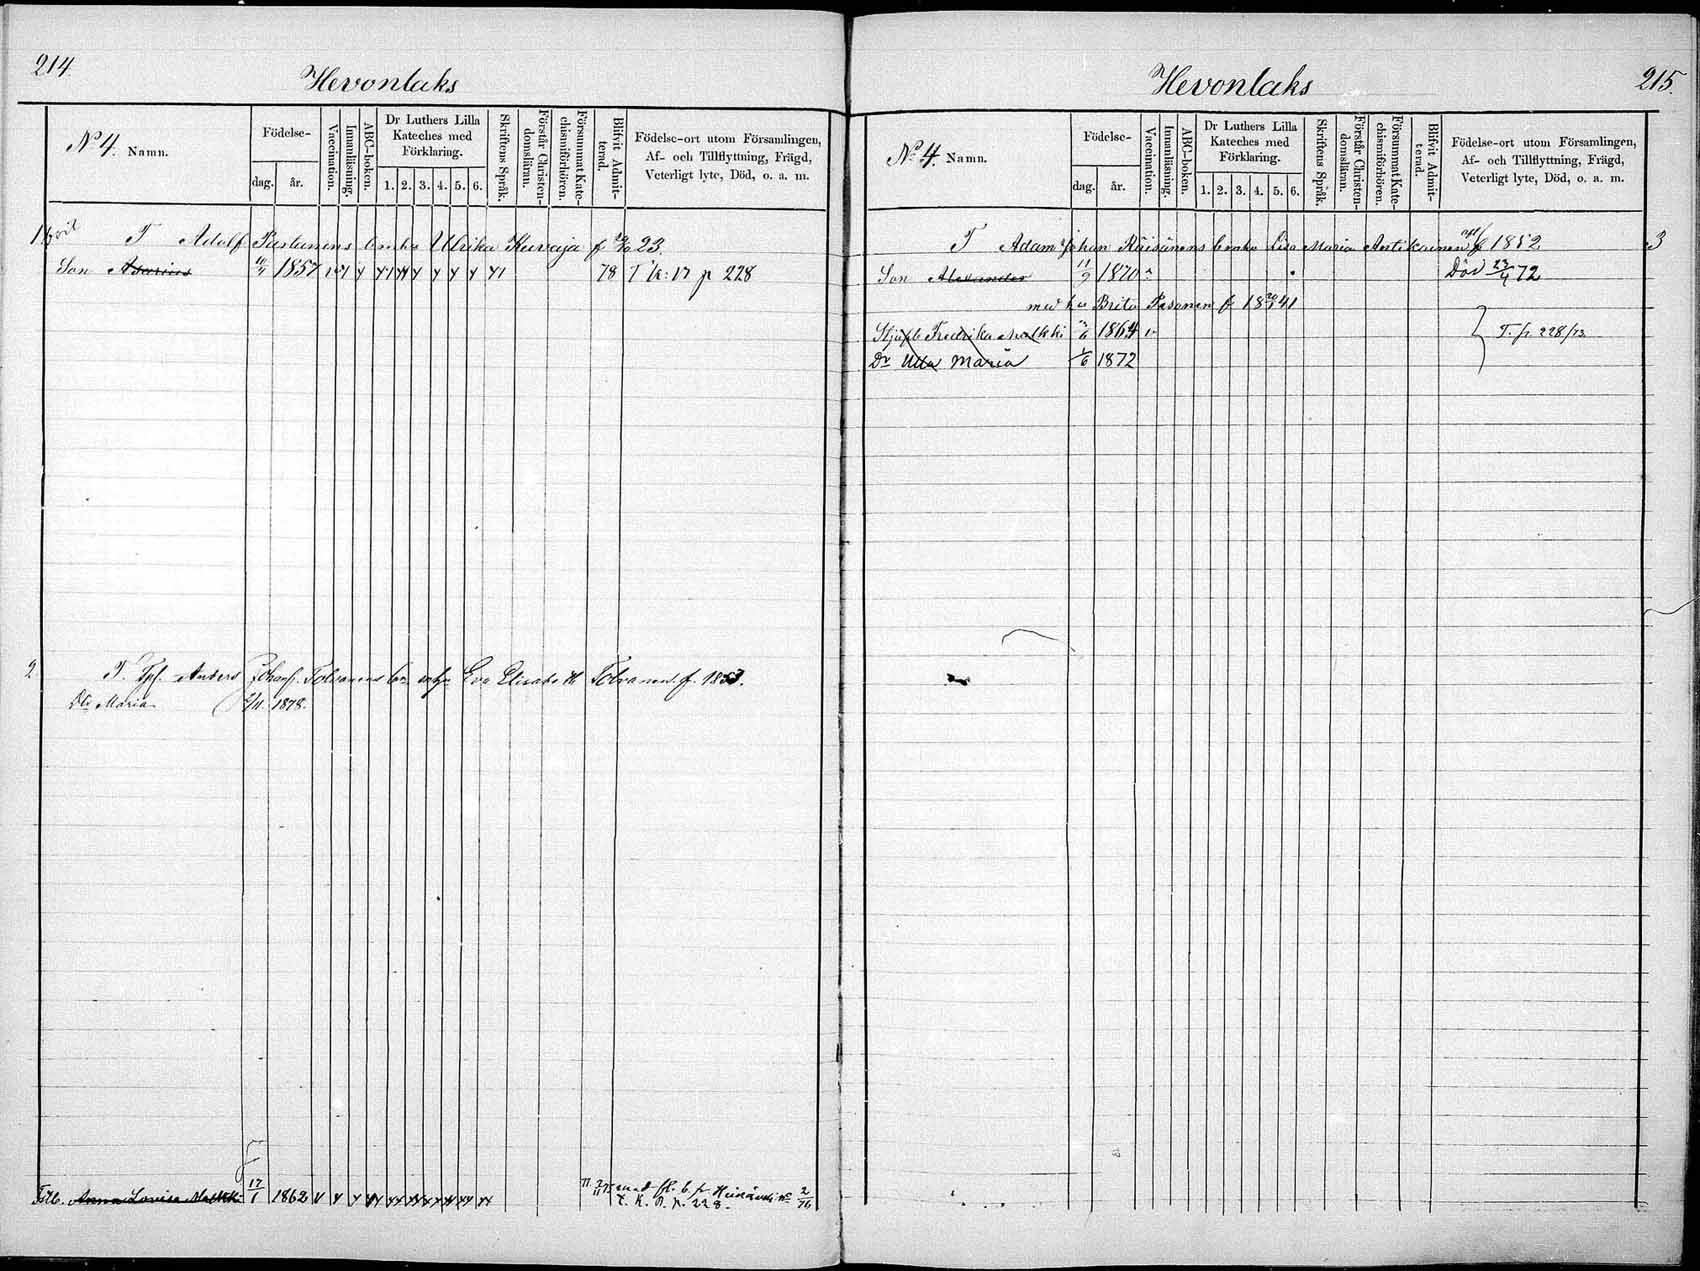 214
Hevonlaks
Nº 4. Namn.
Födelse-
dag. år.
Vaccination.
Innanläsning.
ABC-boken.
Dr Luthers Lilla Kateches med Förklaring.
1. 2. 3. 4. 5. 6.
Skriftens Språk.
Förstår Christen-domsläran.
Försummat Kate-chismiförhören.
Blifvit Admit-terad.
Födelse-ort utom Församlingen,
Af- och Tillflyttning, Frägd,
Veterligt lyte, Död, o. a. m.
T Adolf Enka Ulrika f 23.
Son Asarias 1857 78 T k: 17 p 228
2 T. Anders Johans. Tolvanens Eva Elisabeth Tolvanen f. 1853.
Dr Maria 1878.
Anna Lovisa 17/1 1862 p. 228. 2/76
215.
Hevonlaks
Nº 4. Namn.
Födelse-
dag. år.
Vaccination.
Innanläsning.
ABC-boken.
Dr Luthers Lilla Kateches med Förklaring.
1. 2. 3. 4. 5. 6.
Skriftens Språk.
Förstår Christen-domsläran.
Försummat Kate-chismiförhören.
Blifvit Admit-terad.
Födelse-ort utom Församlingen,
Af- och Tillflyttning, Frägd,
Veterligt lyte, Död, o. a. m.
T Adam Johan Räisänens Enka Lisa Maria Antikainen f 1852 3
Son Alexander 11/9 1870 Död 23/4 72
med hu Brita Pasonen f 18 20/1 41
Fredrika 1864 T. p. 228/73
Dr Ulla Maria 1/6 1872